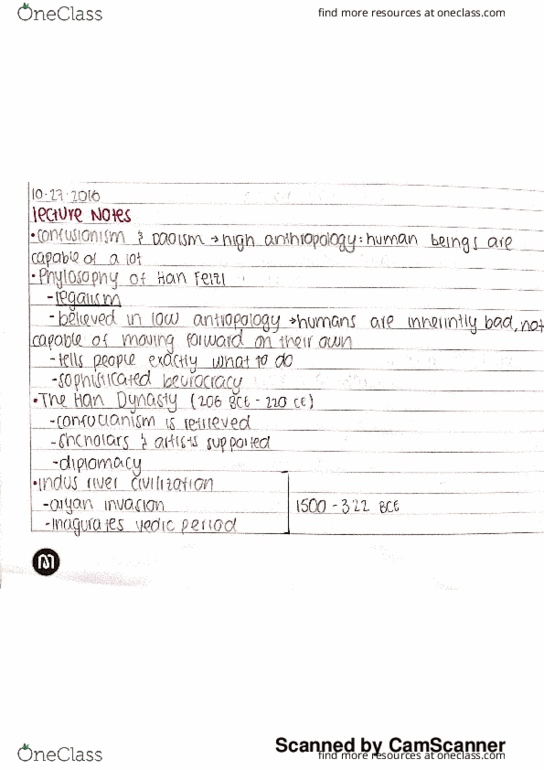 OneClass
find more resources at oneclass.com
10-27-2016
lecture Notes
•Confusionism & Daoism → high anthropology: human beings are
capable of a lot
•Phylosophy of Han Feizi
-legalism
-believed in low antropology → humans are inherintly bad, not
capable of moving forward on their own
-tells people exactly what to do
-sophisticated beurocracy
•The Han Dynasty (206 BCE - 220 CE)
-confucianism is retrieved
-shcholars & artists supported
-diplomacy
•Indus river civilization
-aryan invasion 1500 - 322 BCE
-inagurates vedic period
Scanned by CamScanner
OneClass
find more resources at oneclass.com